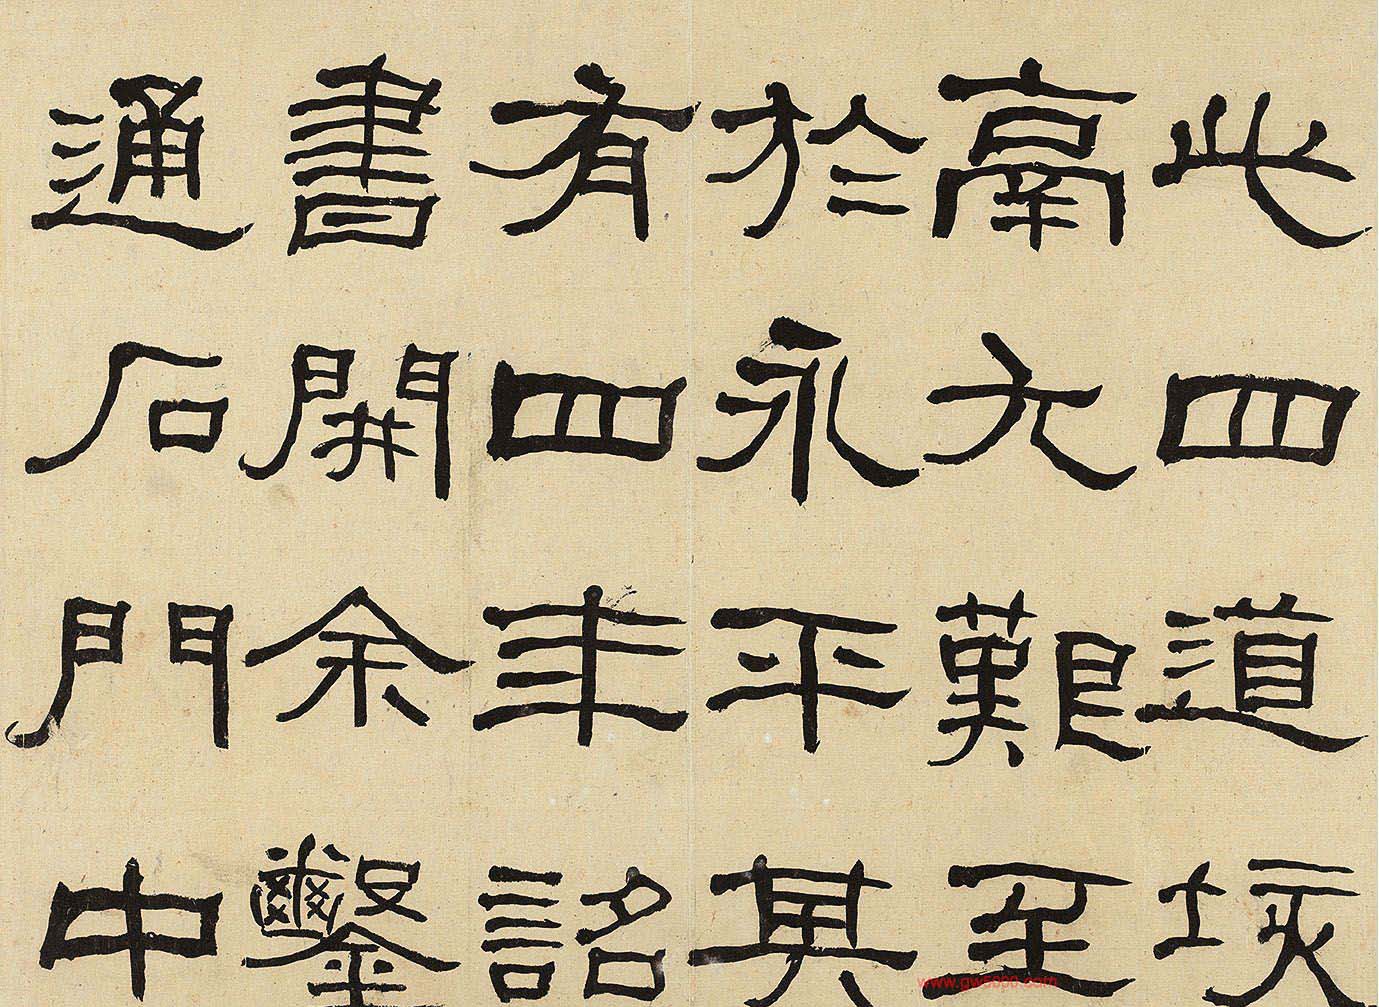 此四道垓
鬲尤難至
於永平其
有四年詔
書開余鑿
通石門中
www.gw5000.com